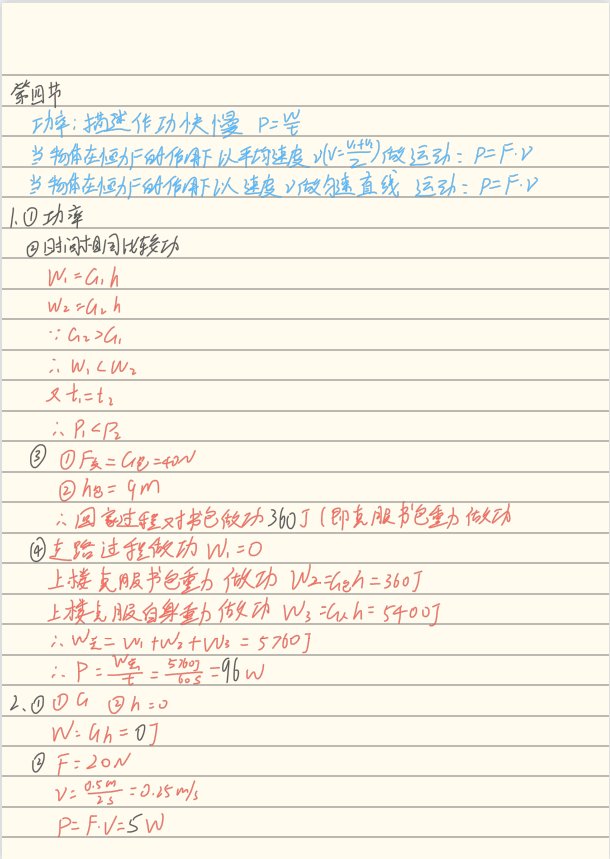 第四节
功率:描述作功快慢 P=W/t
当物体在恒力F的作用下以平均速度v(V=(v₁+v₂)/2)做运动:P=F·V
当物体在恒力F的作用下以速度v做匀速直线运动:P=F·V
1.①功率
②时间相同比较功
W₁=G₁h
W₂=G₂h
∵G₂>G₁
∴W₁<W₂
又t₁=t₂
∴P₁<P₂
③ ①F支=G包=40N
②h包=9m
∴回家过程对书包做功360J(即克服书包重力做功
④走路过程做功W₁=0
上楼克服书包重力做功 W₂=G包h=360J
上楼克服自身重力做功 W₃=G人h=5400J
∴W总=W₁+W₂+W₃=5760J
∴P=W总/t=5760J/60s=96W
2.① ①G ②h=0
W=Gh=0J
② F=20N
V=0.5m/2s=0.25m/s
P=F·V=5W